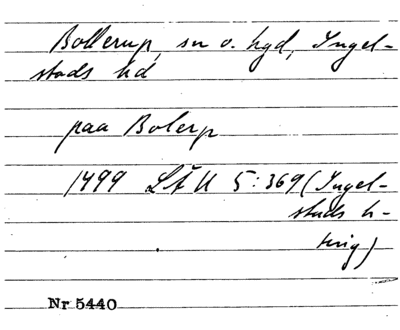 Bollerup, sn o. hgd, Ingel-
stads hd
paa Bolerp
1499 LÄU 5:369 (Ingel-
stads h-
tug)
Nr 5440